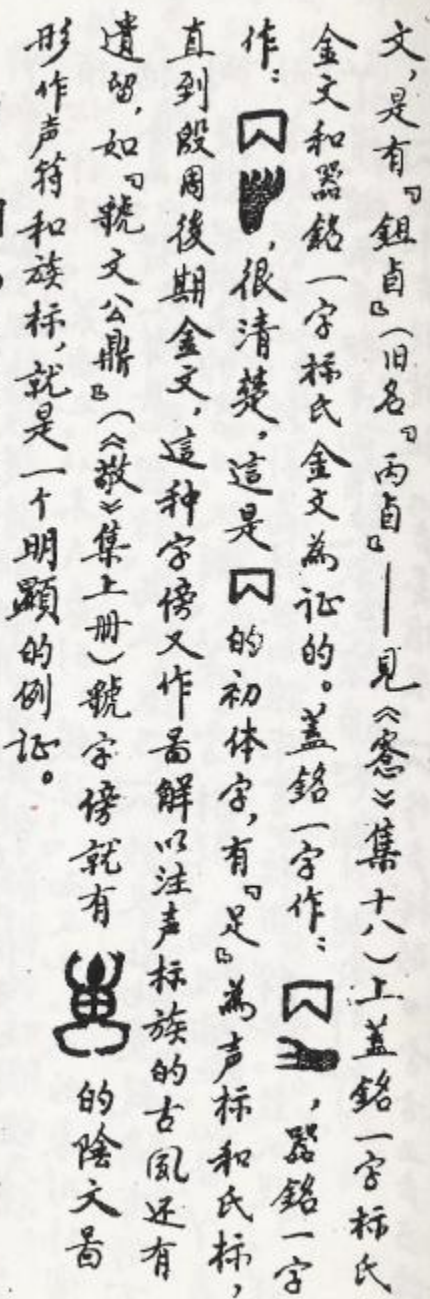 文，是有『鉏卣』（旧名『丙卣』——見《愙》集十八）上蓋銘一字标氏
金文和器銘一字标氏金文為証的。蓋銘一字作： ，器銘一字
作： ，很清楚，這是 的初体字，有『足』為声标和氏标，
直到殷周後期金文，這种字傍又作啚解以注声标族的古風还有
遺留，如『虢文公鼎』（《敬》集上册）虢字傍就有 的陰文啚
形作声符和族标，就是一个明顯的例証。